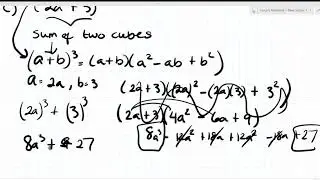 c) (2a + 3)
Sum of two cubes
(a+b)³ = (a+b)(a² - ab + b²)
a = 2a, b = 3
(2a+3)((2a)² - (2a)(3) + 3²)
(2a)³ + (3)³
(2a+3)(4a² - 6a + 9)
8a³ + 27
8a³ - 12a² + 18a + 12a² - 18a + 27